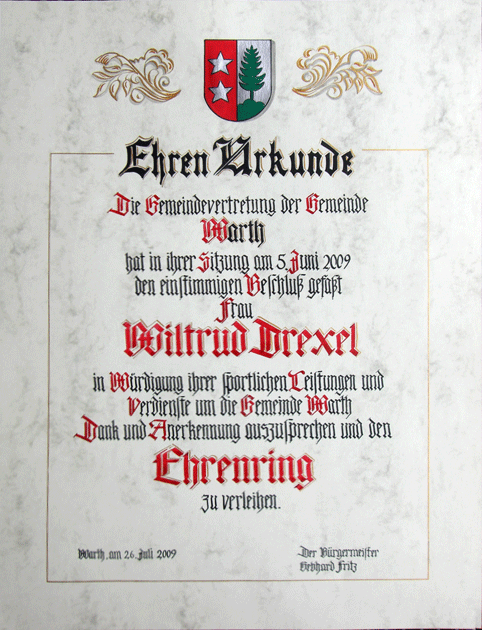 Ehren Urkunde
Die Gemeindevertretung der Gemeinde
Warth
hat in ihrer Sitzung am 5. Juni 2009
den einstimmigen Beschluß gefaßt
Frau
Wiltrud Drexel
in Würdigung ihrer sportlichen Leistungen und
Verdienste um die Gemeinde Warth
Dank und Anerkennung auszusprechen und den
Ehrenring
zu verleihen.
Warth, am 26. Juli 2009
Der Bürgermeister
Gebhard Fritz